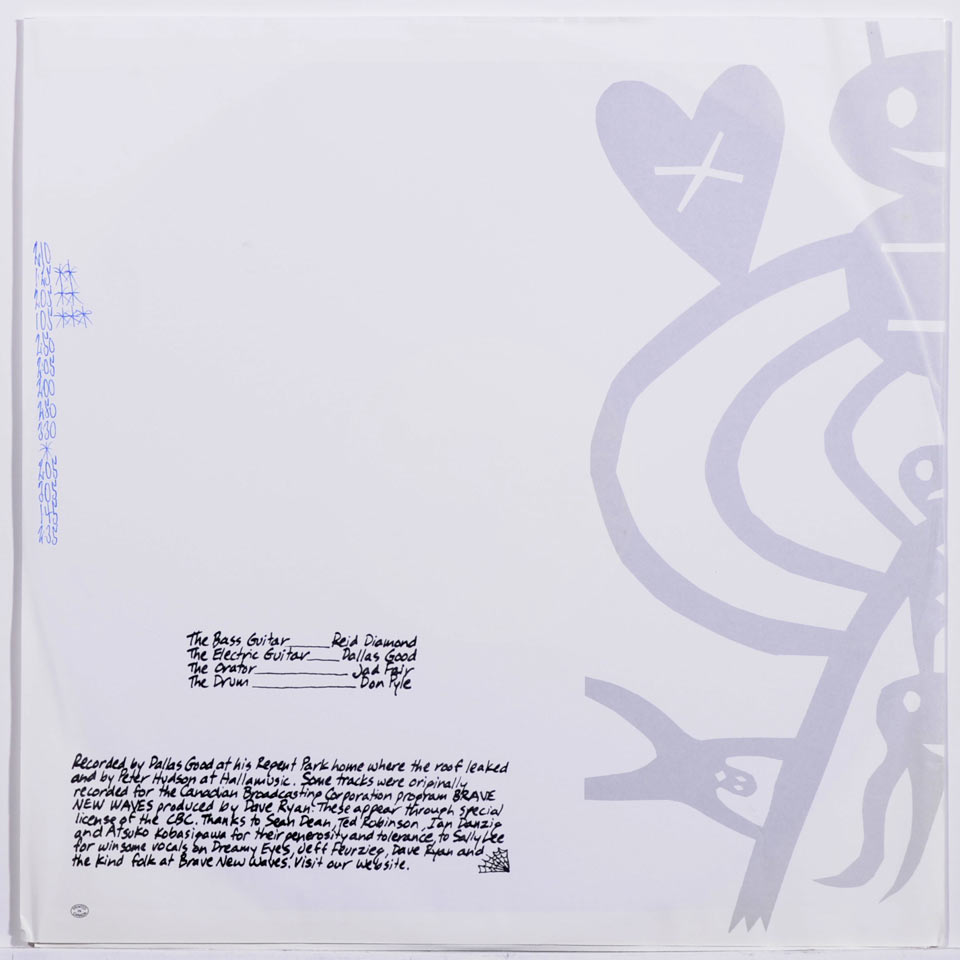 The Bass Guitar____Reid Diamond
The Electric Guitar____Dallas Good
The Orator____________Jad Fair
The Drum____________Don Pyle
Recorded by Dallas Good at his Regent Park home where the roof leaked
and by Peter Hudson at Hallamusic. Some tracks were originally
recorded for the Canadian Broadcasting Corporation program BRAVE
NEW WAVES produced by Dave Ryan. These appear through special
license of the CBC. Thanks to Sean Dean, Ted Robinson, Ian Danzig
and Atsuko Kobasigawa for their generosity and tolerance, to Sally Lee
for winsome vocals on Dreamy Eyes, Jeff Feurzieg, Dave Ryan and
the kind folk at Brave New Waves. Visit our website.